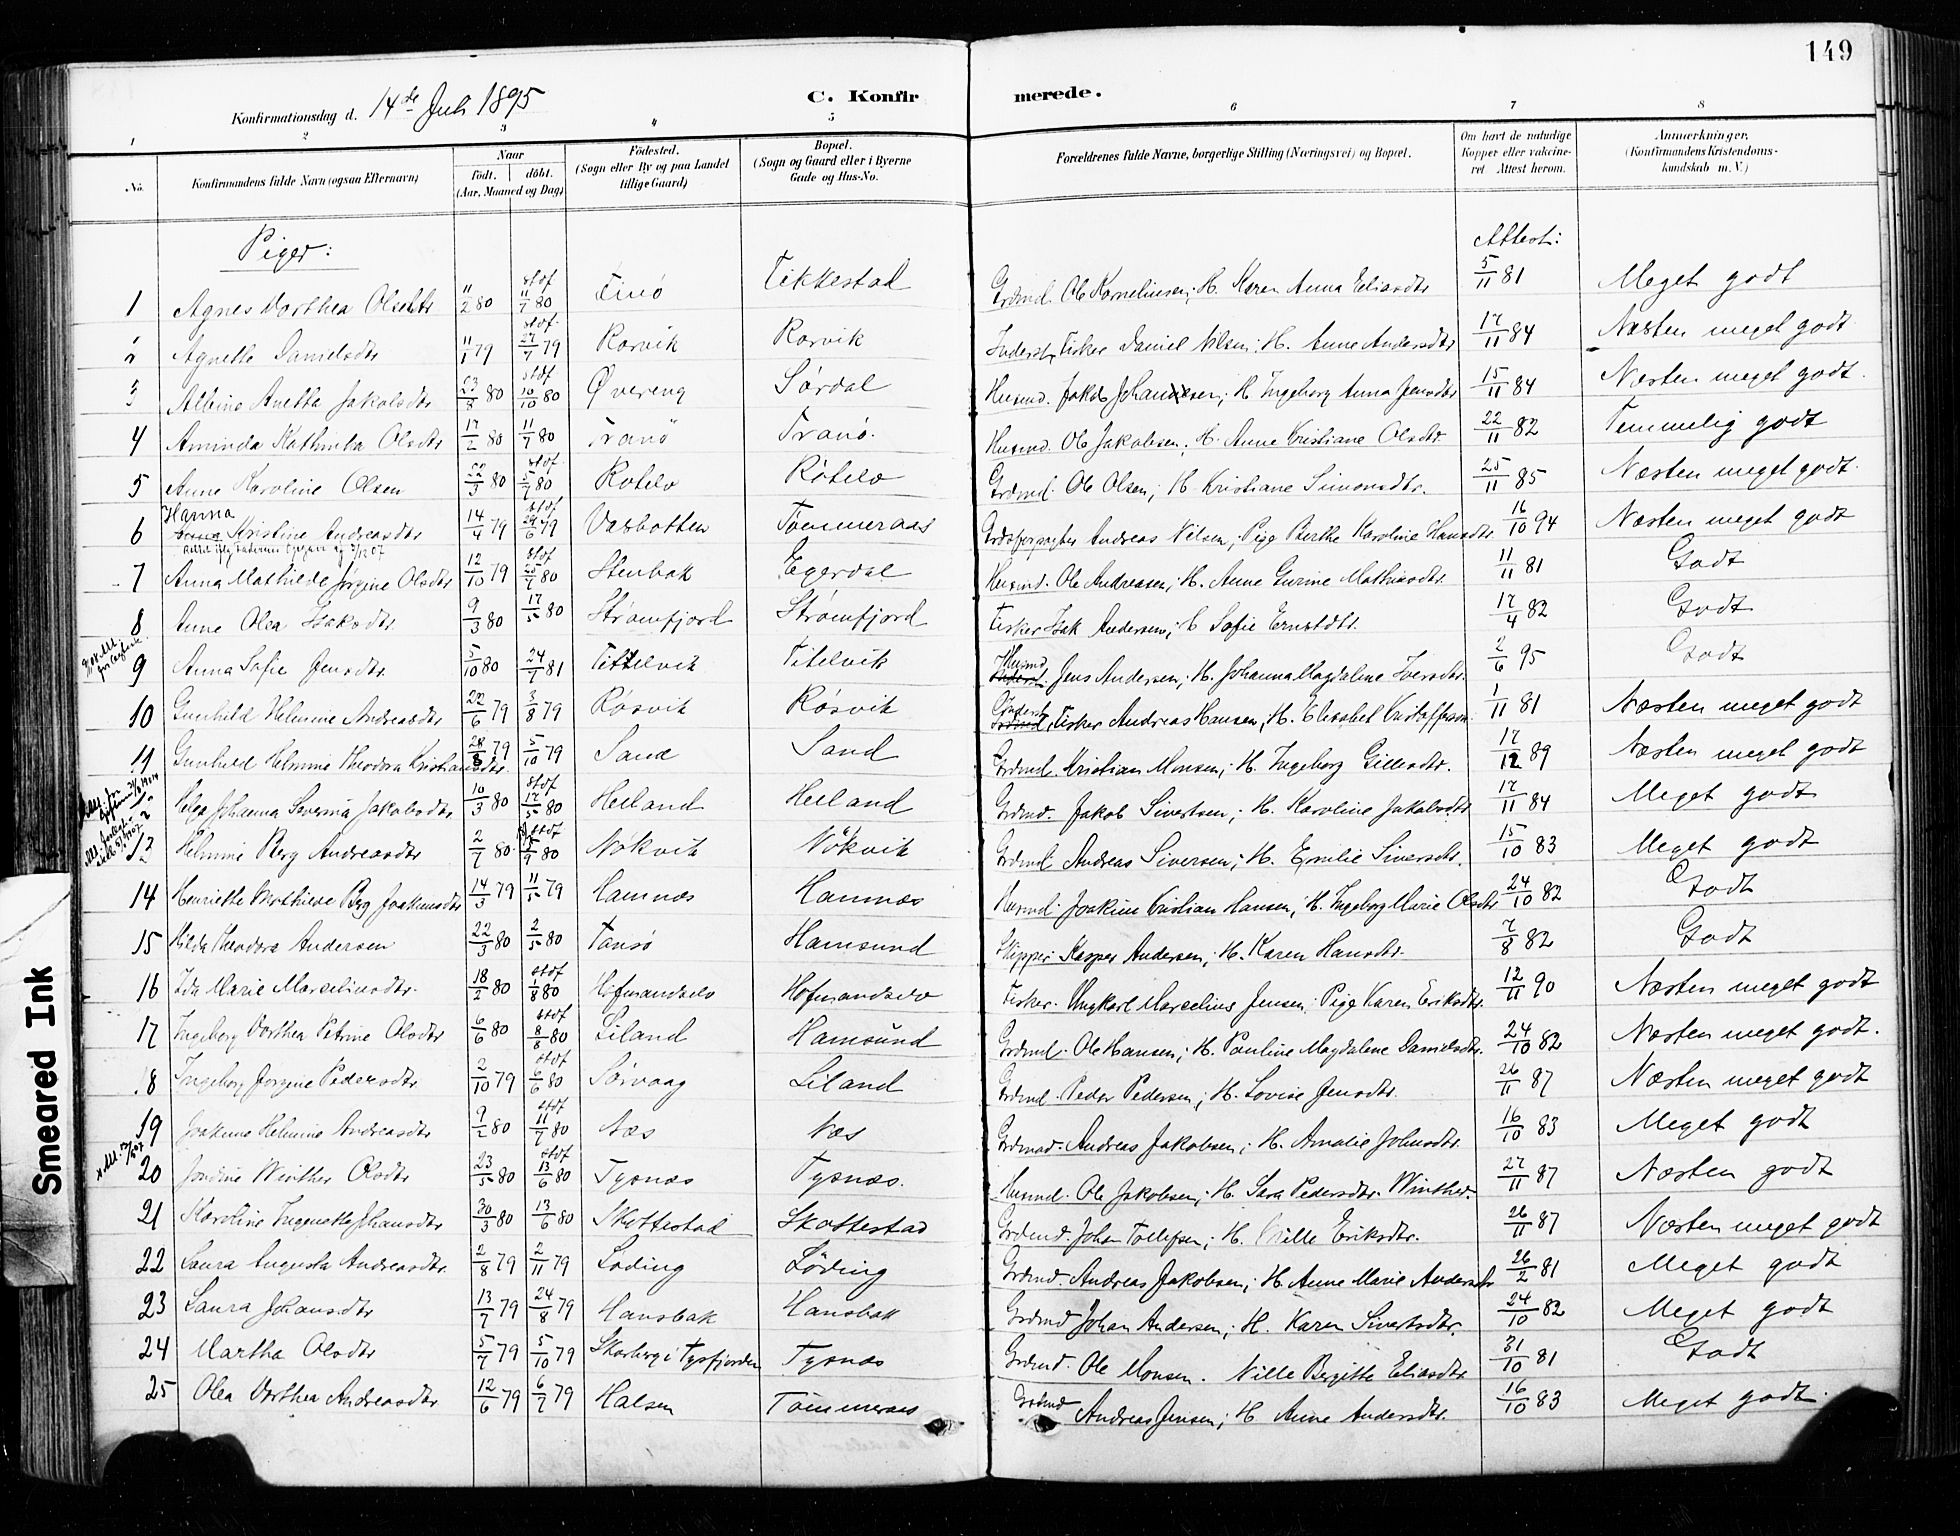 149
Konfirmationsdag d. 14de Juli 1895
C. Konfirmerede.
1 2 3 4 5 6 7 8
No.
Konfirmandens fulde Navn (ogsaa Efternavn)
Naar
født. | døbt.
(Aar, Maaned og Dag)
Fødested.
(Sogn eller By og paa Landet
tillige Gaard)
Bopæl.
(Sogn og Gaard eller i Byerne
Gade og Hus-No.
Forældrenes fulde Navne, borgerlige Stilling (Næringsvei) og Bopæl.
Om havt de naturlige
Kopper eller vakcine-
ret. Attest herom.
Anmærkninger.
(Konfirmandens Kristendoms-
kundskab m. V.)
Piger:
Attest:
1 Agnes Dorthea Olsdtr 11/2 80 stdf 11/7 80 Finø Tikkestad Grdmd. Ole Kornelius.; H. Karen Anna Eliasdtr 5/11 81 Meget godt
2 Agnethe Danielsdtr 11/1 79 stdf. 27/7 79 Korvik Korvik Inderst, Fisker Daniel Nilsen; H. Anne Andersdtr 17/11 84 Næsten meget godt
3 Albine Anetta Jakobsdtr 23/8 80 stdf 10/10 80 Øvereng Sørdal Husmd. Jakob Johansen; H Ingeborg Anna Jensdtr 15/11 84 Næsten meget godt.
4 Aminda Kathinka Olsdtr 17/2 80 11/7 80 Tranø Tranø. Husmd. Ole Jakobsen; H. Anne Kristiane Olsdtr 22/11 82 Temmelig godt
5 Anne Karoline Olsen 22/3 80 stdf 5/7 80 Rotelv Røtelv Grdmd. Ole Olsen; H Kristiane Simonsdtr. 25/11 85 Næsten meget godt.
6 Hanna Kristine Andreasdtr 14/4 79 stdf 29/6 79 Vasbotten Tømmeraas Andreas Nilsen, Pige Berthe Karoline Hansdtr. 16/10 94 Næsten meget godt
7 Anna Mathilde Jørgine Olsdtr 12/10 79 stdf 25/7 80 Stenbak Egerdal Husmd. Ole Andreasen; H. Anne Gurine Mathiasdtr. 11/11 81 Godt
8 Anne Olea Isaksdtr 9/3 80 17/5 80 Strømfjord Strømfjord Fisker Isak Andersen; H Sofie Ernstdtr. 17/4 82 Godt
9 Anna Sofie Jensdtr. 5/10 80 24/7 81 Tittelvik Titelvik Husmd Jens Andersen; H. Johanna Magdalene Iversdtr. 2/6 95 Godt
10 Gunhild Helmine Andreasdtr 22/6 79 3/8 79 Røsvik Røsvik Inderst Fisker Andreas Hansen; H. Elisabet Kristoffersen 1/11 81 Næsten meget godt
11 Gunhild Helmine Theodora Kristiansdtr. 28/8 79 5/10 79 Sand Sand Grdmd. Kristian Monsen; H. Ingeborg Gillesdtr. 17/12 89 Næsten meget godt
12 Helga Johanna Severine Jakobsdtr 10/3 80 stdf 17/5 80 Helland Helland Grdmd. Jakob Sivertsen; H. Karoline Jakobsdtr 17/11 84 Meget godt
13 Helmine Berg Andreasdtr 2/7 80 stdf 5/9 80 Nøkvik Nøkvik Grdmd. Andreas Siversen; H. Emilie Siversdtr. 15/10 83 Meget godt
14 Henriette Mathilde Berg Joakimsdtr 14/3 79 11/5 79 Hamnæs Hamnæs Husmd. Joakim Kristian Hansen; H. Ingeborg Marie Olsdtr 24/10 82 Godt
15 Hilda Theodora Andersen 22/3 80 2/5 80 Tansø Hamsund Skipper Kasper Andersen; H. Karen Hansdtr. 7/8 82 Godt
16 Ida Marie Marcelinsdtr. 18/2 80 stdf 1/8 80 Hofmandselv Hofmandselv Fisker. Ungkarl Marcelius Jensen; Pige Karen Eriksdtr. 12/11 90 Næsten meget godt
17 Ingeborg Dorthea Petrine Olsdtr 6/6 80 stdf 8/8 80 Liland Hamsund Grdmd. Ole Hansen; H. Pauline Magdalene Danielsdtr. 24/10 82 Næsten meget godt.
18 Ingeborg Jørgine Pedersdtr 2/10 79 stdf 6/6 80 Sørvaag Liland Grdmd Peder Pedersen; H. Lovise Jensdtr. 26/11 87 Næsten meget godt
19 Joakime Helmine Andreasdtr 9/2 80 stdf 11/7 80 Næs Næs Grdmd. Andreas Jakobsen; H. Amalie Johnsdtr. 16/10 83 Meget godt
20 Jordine Winther Olsdtr 23/5 80 stdf 13/6 80 Tysnæs Tysnæs. Husmd. Ole Jakobsen; H. Sara Pedersdtr. Winther 27/11 87 Næsten godt
21 Karoline Ingeretha Johansdtr 30/3 80 13/6 80 Skottestad Skottestad Grdmd. Johan Tollefsen; H. Nille Eriksdtr. 26/11 87 Næsten meget godt
22 Laura Augusta Andreasdtr. 2/8 79 2/11 79 Løding Løding Grdmd. Andreas Jakobsen; H. Anne Marie Andersdtr 26/2 81 Meget godt
23 Laura Johansdtr 13/7 79 24/8 79 Hansbak Hansbak Grdmd Johan Andersen; H. Karen Sivertsdtr. 24/10 82 Meget godt
24 Martha Olsdtr 5/7 79 5/10 79 Skarberg i Tysfjorden Tysnæs Grdmd. Ole Monsen. Nille Bergitte Eliasdtr 31/10 81 Godt
25 Olea Dorthea Andreasdtr 12/6 79 6/7 79 Halsen Tømmeraas Grdmd Andreas Jensen; H Anne Andersdtr. 16/10 83 Meget godt.
Smeared Ink